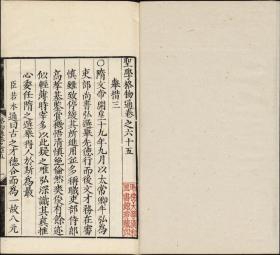 聖學格物通卷之六十五
舉措三
○隋文帝開皇十九年九月以太常卿牛弘為
吏部尚書弘選舉先德行而後文才務在審
慎雖致停緩其所進用並多稱職吏部侍郎
高孝基鑒賞機晤清慎絕倫然爽俊有餘迹
似輕薄時宰多以此疑之唯弘深識其真推
心委任隋之選舉得人於斯為最
臣若水通曰古之才德合而為一故八元